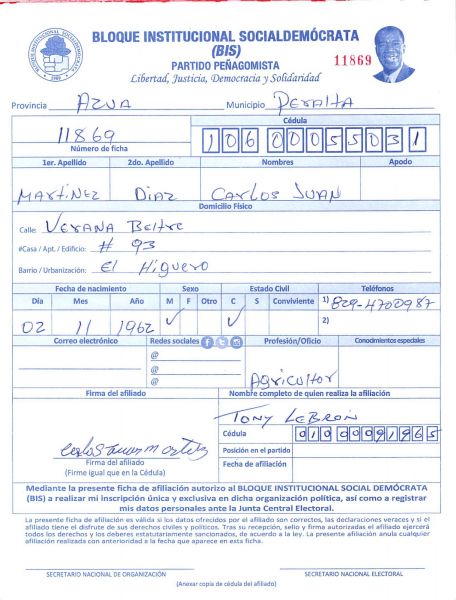 BLOQUE INSTITUCIONAL SOCIALDEMÓCRATA
(BIS)
PARTIDO PEÑAGOMISTA
11869
Libertad, Justicia, Democracia y Solidaridad
Provincia AZUA Municipio PERALTA
Cédula
11869 10600055031
Número de ficha
1er. Apellido 2do. Apellido Nombres Apodo
MARTINEZ DIAZ CARLOS JUAN
Domicilio Físico
Calle: VERANA Beltre
#Casa / Apt. / Edificio: # 93
Barrio / Urbanización: El Higuero
Fecha de nacimiento Sexo Estado Civil Teléfonos
Día Mes Año M F Otro C S Conviviente 1) 829-4700987
02 11 1962 ✓ ✓ 2)
Correo electrónico Redes sociales Profesión/Oficio Conocimientos especiales
@
@
@ Agricultor
Firma del afiliado Nombre completo de quien realiza la afiliación
TONY LEBRON
Cédula 01000991865
Posición en el partido
Firma del afiliado Fecha de afiliación
(Firme igual que en la Cédula)
Mediante la presente ficha de afiliación autorizo al BLOQUE INSTITUCIONAL SOCIAL DEMÓCRATA
(BIS) a realizar mi inscripción única y exclusiva en dicha organización política, así como a registrar
mis datos personales ante la Junta Central Electoral.
La presente ficha de afiliación es válida si los datos ofrecidos por el afiliado son correctos, las declaraciones veraces y si el
afiliado tiene el disfrute de sus derechos civiles y políticos. Tras su recepción, sello y firma autorizados el afiliado ejercerá
todos los derechos y los deberes estatutariamente sancionados, de acuerdo a la ley. La presente afiliación anula cualquier
afiliación realizada con anterioridad a la fecha que aparece en esta ficha.
SECRETARIO NACIONAL DE ORGANIZACIÓN SECRETARIO NACIONAL ELECTORAL
(Anexar copia de cédula del afiliado)